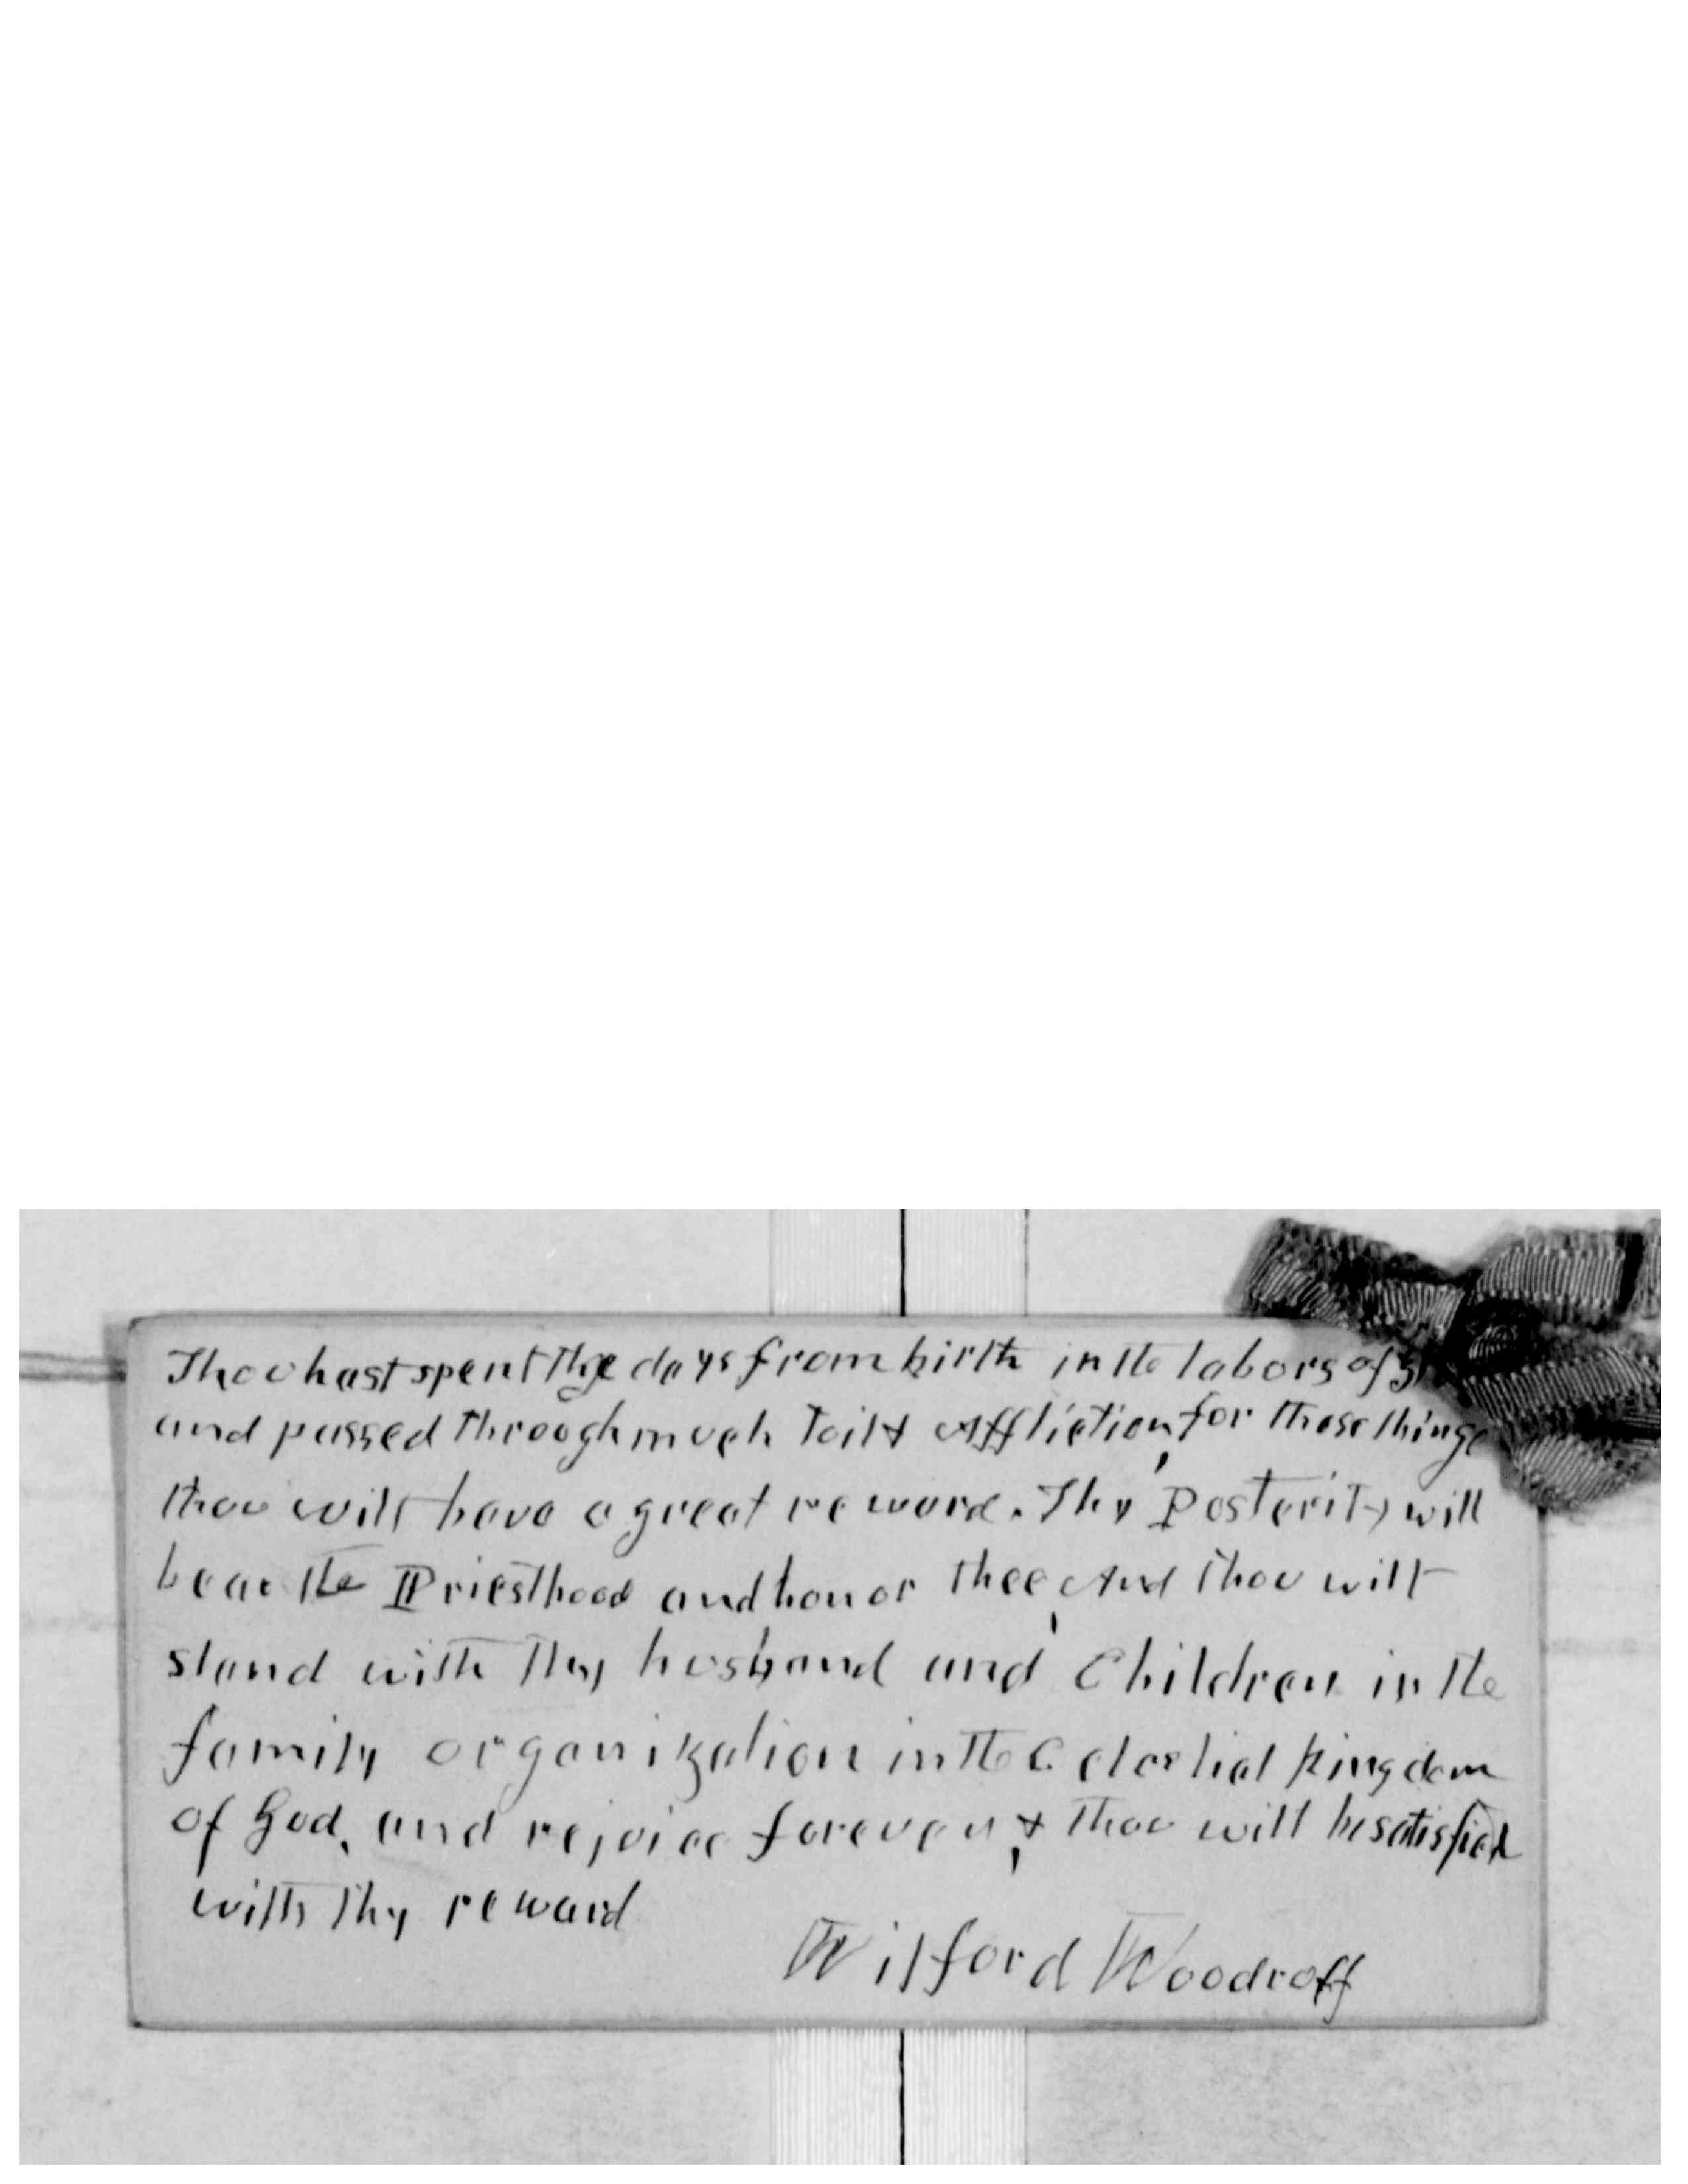 Thou hast spent the days from birth in the labors of
and passed through much toil & Affliction, for those things
thou will have a great reward. Thy Posterity will
bear the Priesthood and honor thee, And thou will
stand with thy husband and Children in the
family organization in the Celestial kingdom
of God, and rejoice forever, & thou will be satisfied
with thy reward
Wilford Woodruff